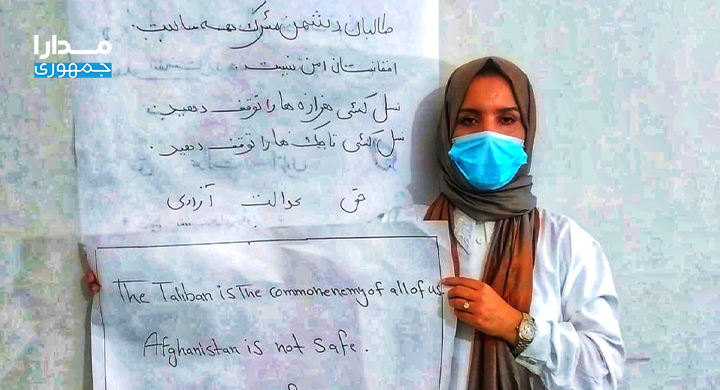 مدارا
جمهوری
طالبان دشمن مشترک همه ماست.
افغانستان امن نیست.
نسل کشی هزاره ها را توقف دهید.
نسل کشی تاجک ها را توقف دهید.
حق عدالت آزادی
The Taliban is The common enemy of all of us
Afghanistan is not safe.